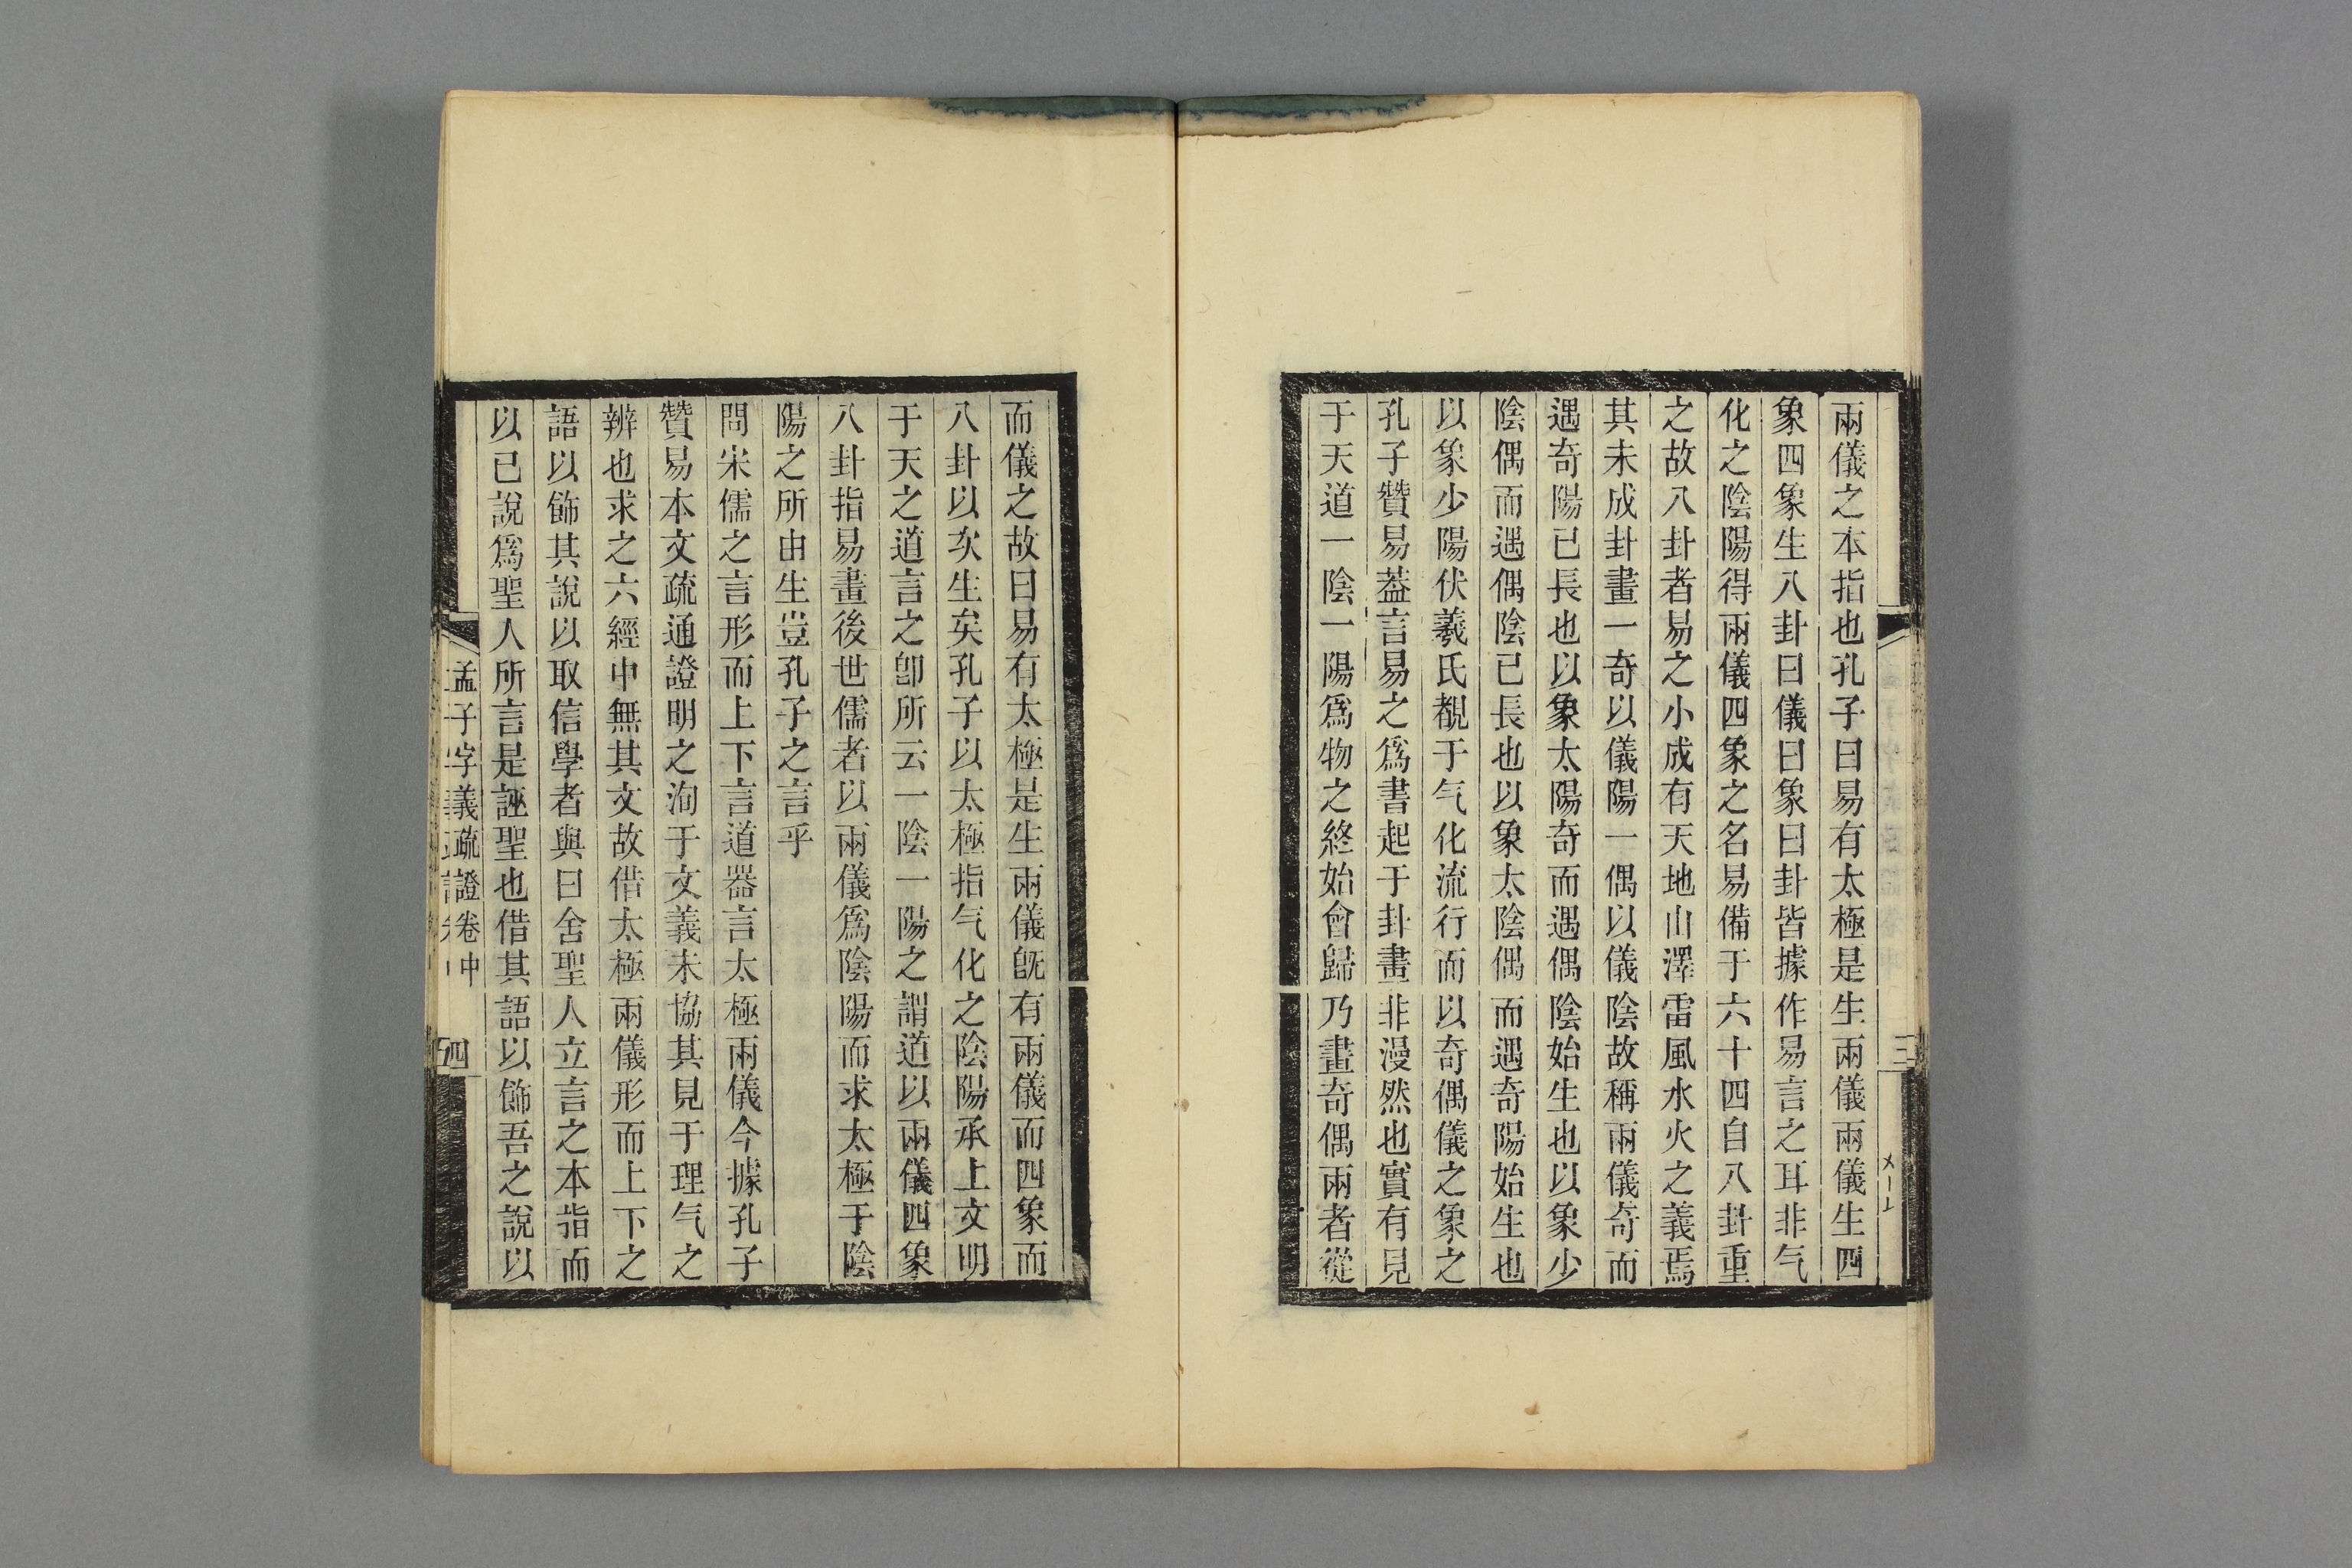 兩儀之本指也孔子曰易有太極是生兩儀兩儀生四
象四象生八卦曰儀曰象曰卦皆據作易言之耳非气
化之陰陽得兩儀四象之名易備于六十四自八卦重
之故八卦者易之小成有天地山澤雷風水火之義焉
其未成卦畫一奇以儀陽一偶以儀陰故稱兩儀奇而
遇奇陽已長也以象太陽奇而遇偶陰始生也以象少
陰偶而遇偶陰已長也以象太陰偶而遇奇陽始生也
以象少陽伏羲氏覩于气化流行而以奇偶儀之象之
孔子贊易葢言易之爲書起于卦畫非漫然也實有見
于天道一陰一陽爲物之終始會歸乃畫奇偶兩者從
三
而儀之故曰易有太極是生兩儀旣有兩儀而四象而
八卦以次生矣孔子以太極指气化之陰陽承上文明
于天之道言之卽所云一陰一陽之謂道以兩儀四象
八卦指易畫後世儒者以兩儀爲陰陽而求太極于陰
陽之所由生豈孔子之言乎
問宋儒之言形而上下言道器言太極兩儀今據孔子
贊易本文疏通證明之洵于文義未協其見于理气之
辨也求之六經中無其文故借太極兩儀形而上下之
語以飾其說以取信學者與曰舍聖人立言之本指而
以已說爲聖人所言是誣聖也借其語以飾吾之說以
孟子字義疏證卷中
四